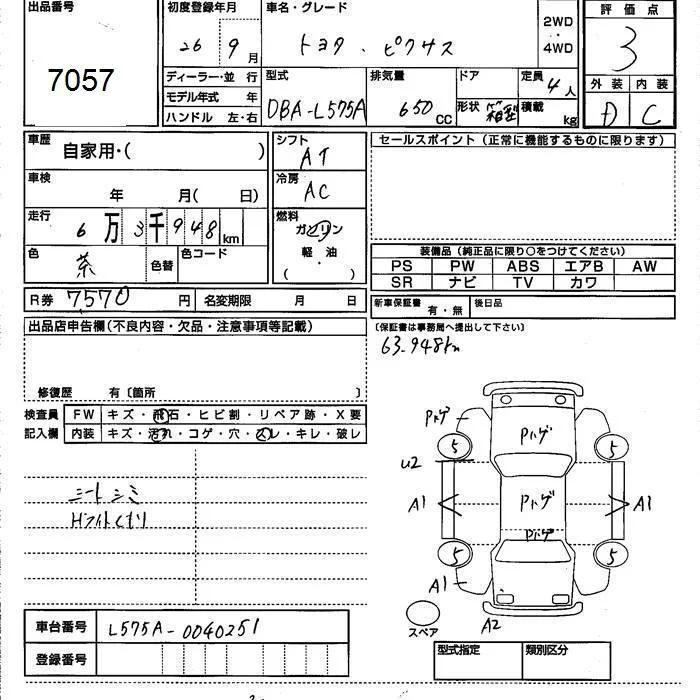 出品番号
7057
初度登録年月
26 9月
ディーラー・並行
モデル年式 年
ハンドル 左・右
車名・グレード
トヨタ・ピクサス
2WD
・
4WD
型式
DBA-L575A
排気量
650CC
ドア
形状 箱型
定員
4人
積載
kg
評価点
3
外装 内装
D C
車歴
自家用・( )
車検
年 月( 日)
走行
6万3千948km
色
茶
色替
色コード
シフト
AT
冷房
AC
燃料
ガソリン
・
軽油
( )
R券 7570円
名変期限 月 日
セールスポイント(正常に機能するものに限ります)
装備品(純正品に限り○をつけてください)
PS PW ABS エアB AW
SR ナビ TV カワ
新車保証書 有・無
後日品
(保証書は事務局へ提出して下さい)
63.948km
出品店申告欄(不良内容・欠品・注意事項等記載)
修復歴 有〔箇所 〕
検査員記入欄
FW キズ・飛石・ヒビ割・リペア跡・X要
内装 キズ・汚れ・コゲ・穴・スレ・キレ・破レ
シートシミ
Hライトくもり
Pハゲ
Pハゲ
5 5
U2
A1 Pハゲ A1
Pハゲ
5 5
A1
スペア
A2
車台番号 L575A-0040251
登録番号
型式指定 類別区分